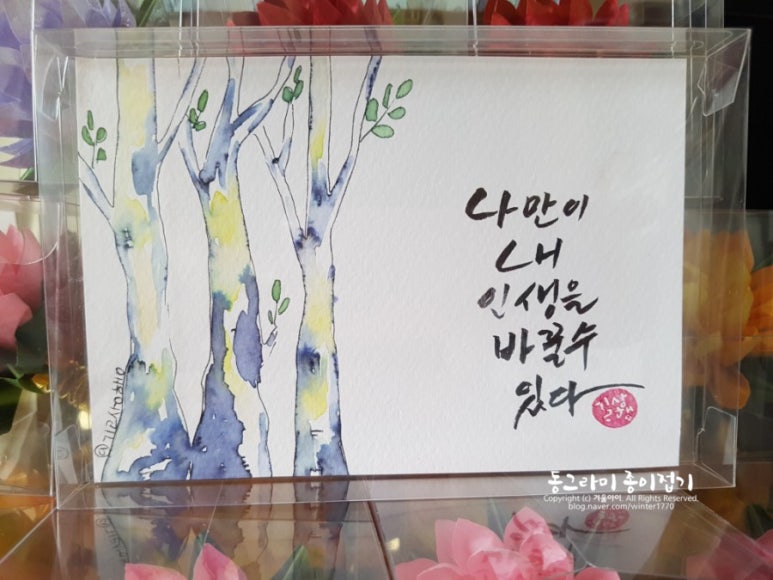 나만이
내
인생을
바꿀수
있다
동그라미 종이접기
Copyright (c) 겨울아이. All Rights Reserved.
blog.naver.com/winter1770